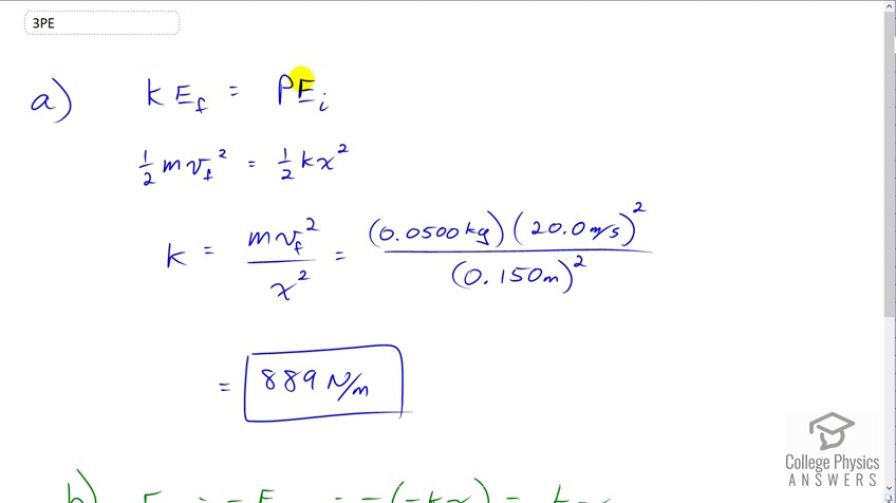 3PE
a) KE_f = PE_i
½ m v_f² = ½ k x²
k = m v_f² / x² = (0.0500 kg)(20.0 m/s)² / (0.150 m)²
= 889 N/m
b)
College Physics
ANSWERS